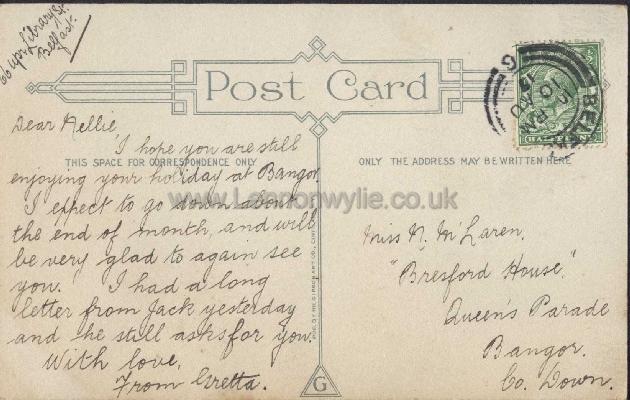 66 Upr. Library St.
Belfast.
Post Card
THIS SPACE FOR CORRESPONDENCE ONLY
ONLY THE ADDRESS MAY BE WRITTEN HERE
Dear Nellie,
I hope you are still
enjoying your holiday at Bangor.
I expect to go down about
the end of month, and will
be very glad to again see
you. I had a long
letter from Jack yesterday
and he still asks for you.
With love,
From Cretta.
Miss N. McLaren.
"Bresford House."
Queen's Parade
Bangor.
Co. Down.
www.Lennonwylie.co.uk
G